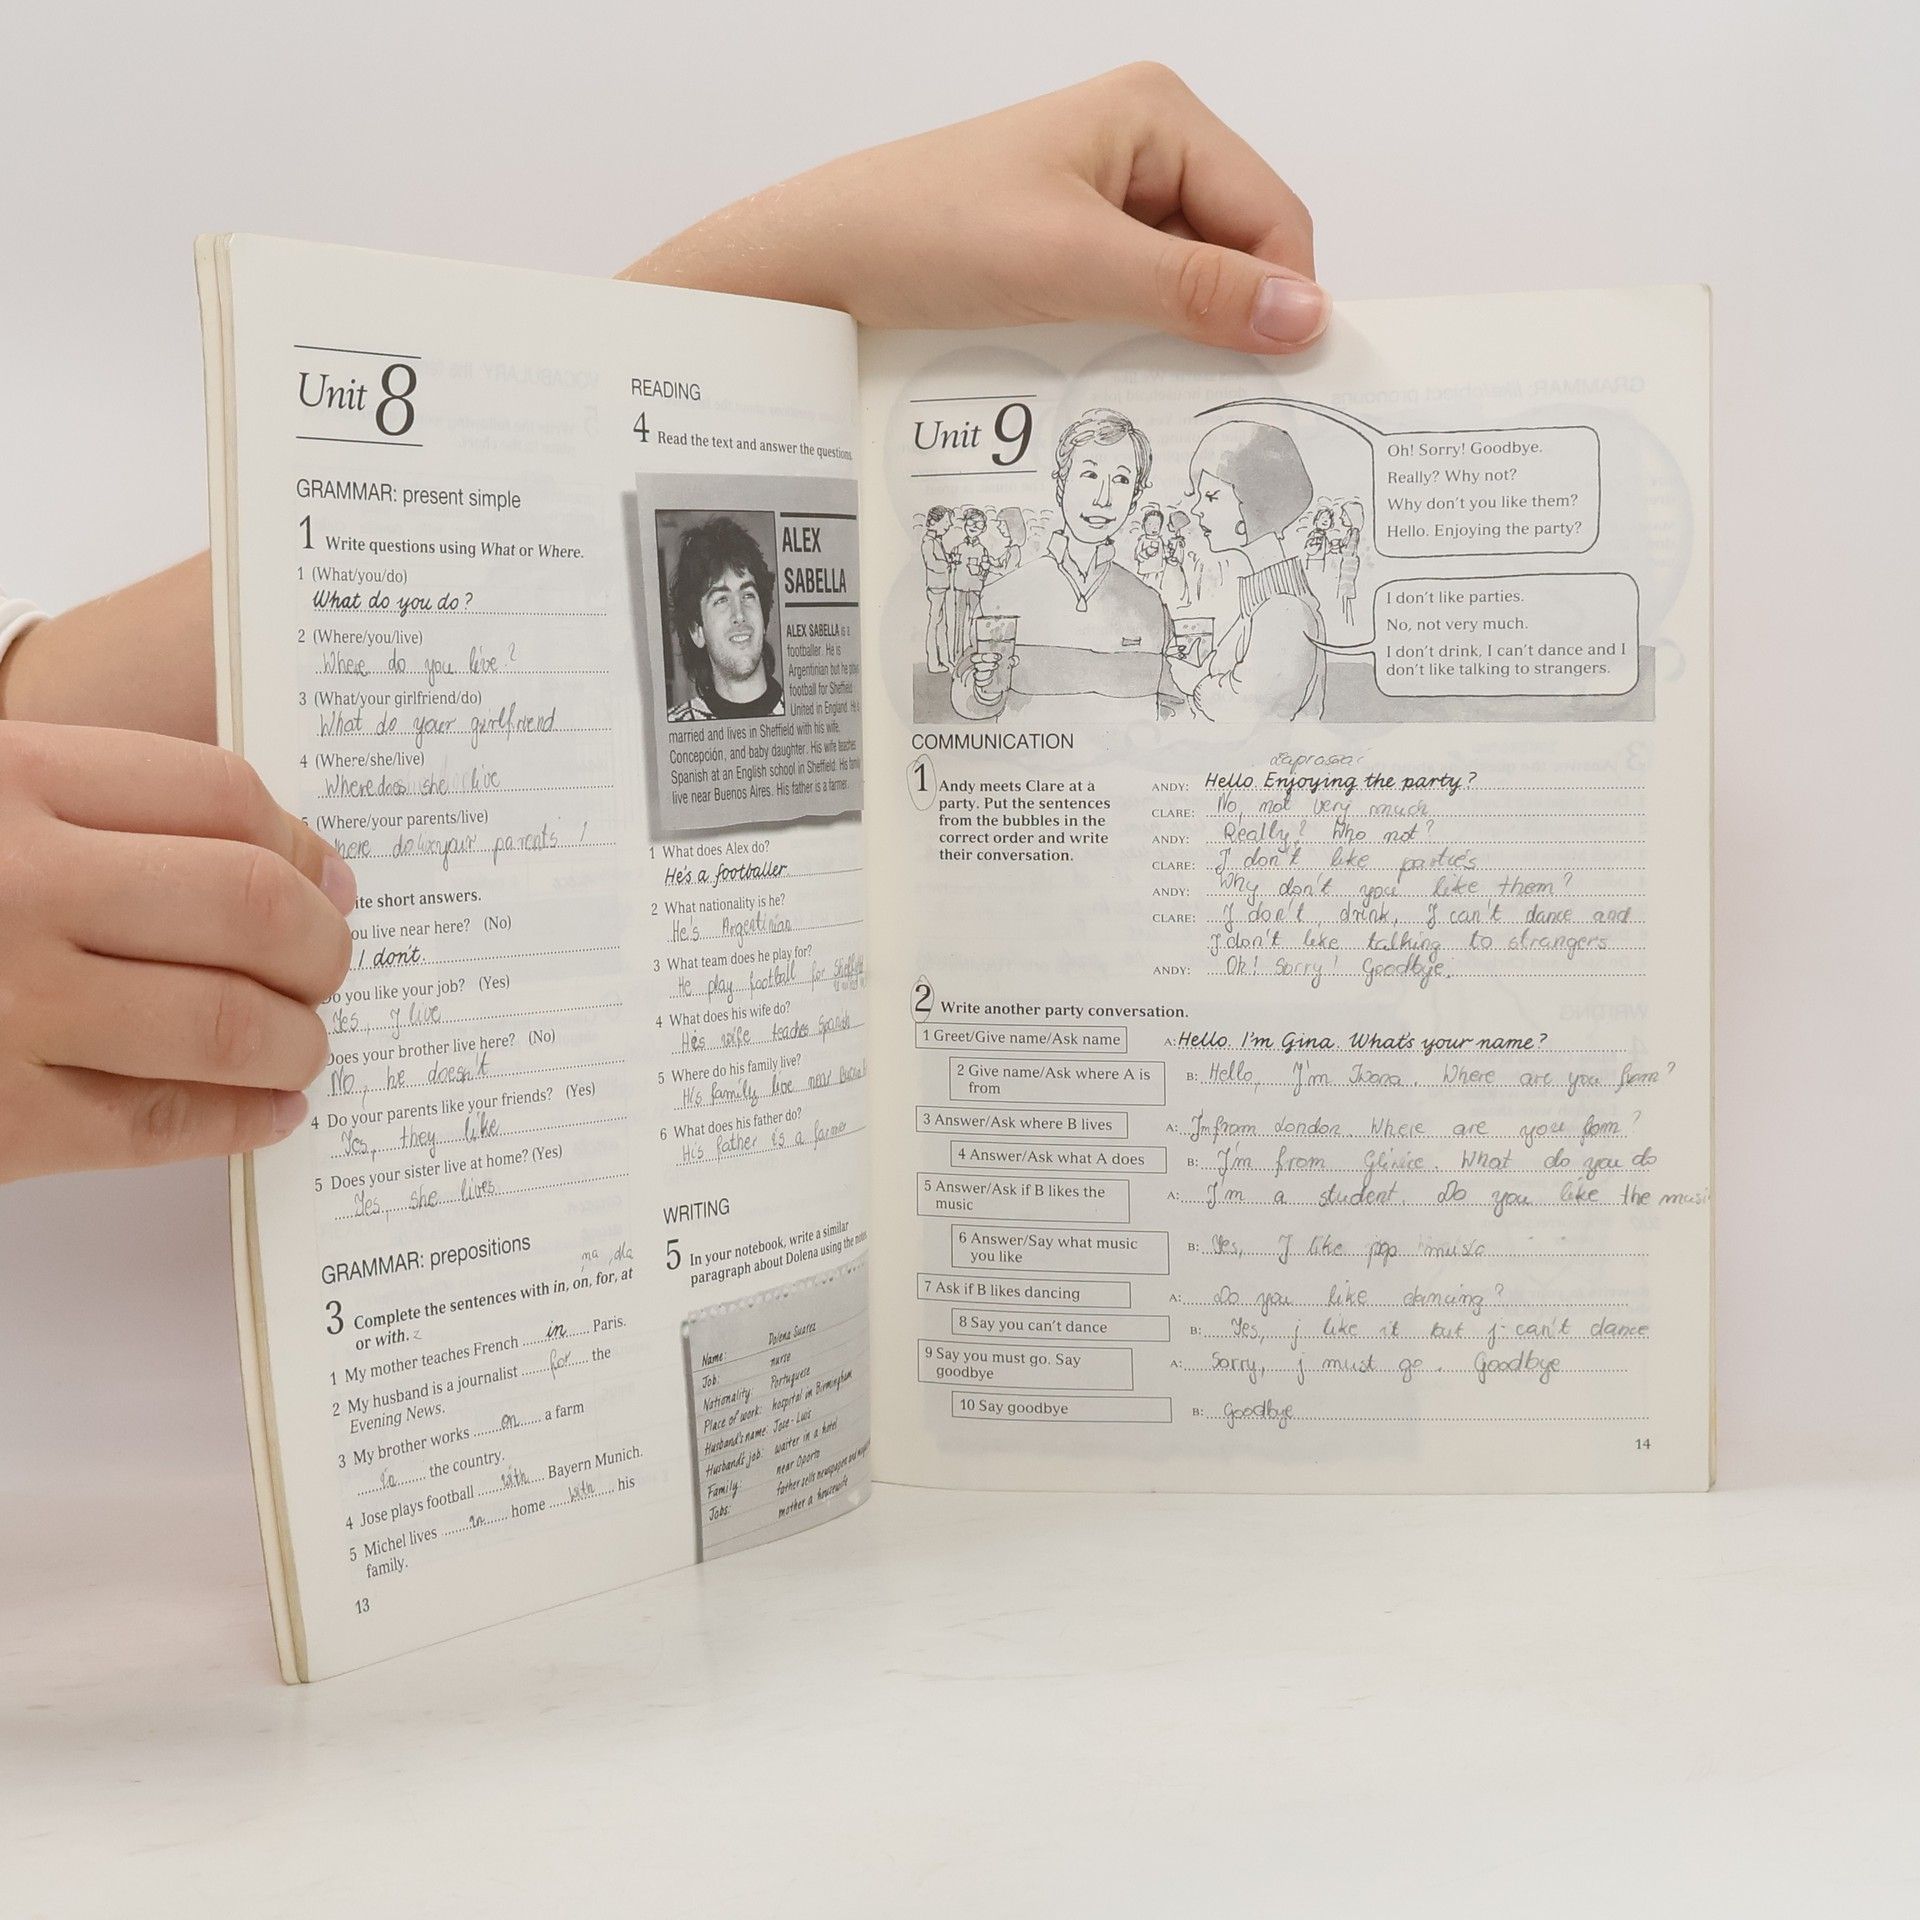 Unit 8
GRAMMAR: present simple
1 Write questions using What or Where.
1 (What/you/do)
What do you do?
2 (Where/you/live)
Where do you live?
3 (What/your girlfriend/do)
What do your girlfriend
4 (Where/she/live)
Where does she live
(Where/your parents/live)
your parents
ite short answers.
ou live near here? (No)
I don't.
Do you like your job? (Yes)
Yes, I live
Does your brother live here? (No)
No, he doesn't
4 Do your parents like your friends? (Yes)
Yes, they like
5 Does your sister live at home? (Yes)
Yes, she lives
GRAMMAR: prepositions
na dla
3 Complete the sentences with in, on, for, at
or with. z
1 My mother teaches French in Paris.
2 My husband is a journalist for the
Evening News.
3 My brother works on a farm
in the country.
4 Jose plays football with Bayern Munich.
5 Michel lives in home with his
family.
13
READING
4 Read the text and answer the questions.
ALEX
SABELLA
ALEX SABELLA is a
footballer. He is
Argentinian but he plays
football for Sheffield
United in England. He is
married and lives in Sheffield with his wife,
Concepción, and baby daughter. His wife teaches
Spanish at an English school in Sheffield. His family
live near Buenos Aires. His father is a farmer.
1 What does Alex do?
He's a footballer.
2 What nationality is he?
He's Argentinian
3 What team does he play for?
He play football for
4 What does his wife do?
His wife teaches Spanish
5 Where do his family live?
His family live near
6 What does his father do?
His father is a farmer
WRITING
5 In your notebook, write a similar
paragraph about Dolena using the notes
Name: Dolena Suarez
Job: nurse
Nationality: Portuguese
Place of work: hospital in Birmingham
Husband's name: Jose-Luis
Husband's job: waiter in a hotel
Family: near Oporto
Jobs: father sells newspapers and
mother a housewife
Unit 9
Oh! Sorry! Goodbye.
Really? Why not?
Why don't you like them?
Hello. Enjoying the party?
I don't like parties.
No, not very much.
I don't drink, I can't dance and I
don't like talking to strangers.
COMMUNICATION
1 Andy meets Clare at a
party. Put the sentences
from the bubbles in the
correct order and write
their conversation.
ANDY: Hello. Enjoying the party?
CLARE: No, not very much
ANDY: Really? Who not?
CLARE: I don't like parties
ANDY: Why don't you like them?
CLARE: I don't drink, I can't dance and
I don't like talking to strangers
ANDY: Oh! Sorry! Goodbye.
2 Write another party conversation.
1 Greet/Give name/Ask name
A: Hello. I'm Gina. What's your name?
2 Give name/Ask where A is
from
B: Hello, I'm Iwona. Where are you from?
3 Answer/Ask where B lives
A: I'm from London. Where are you from?
4 Answer/Ask what A does
B: I'm from Gliwice. What do you do
5 Answer/Ask if B likes the
music
A: I'm a student. Do you like the musi
6 Answer/Say what music
you like
B: Yes, I like pop music
7 Ask if B likes dancing
A: Do you like dancing?
8 Say you can't dance
B: Yes, j like it but j can't dance
9 Say you must go. Say
goodbye
A: Sorry, j must go. Goodbye
10 Say goodbye
B: Goodbye
14